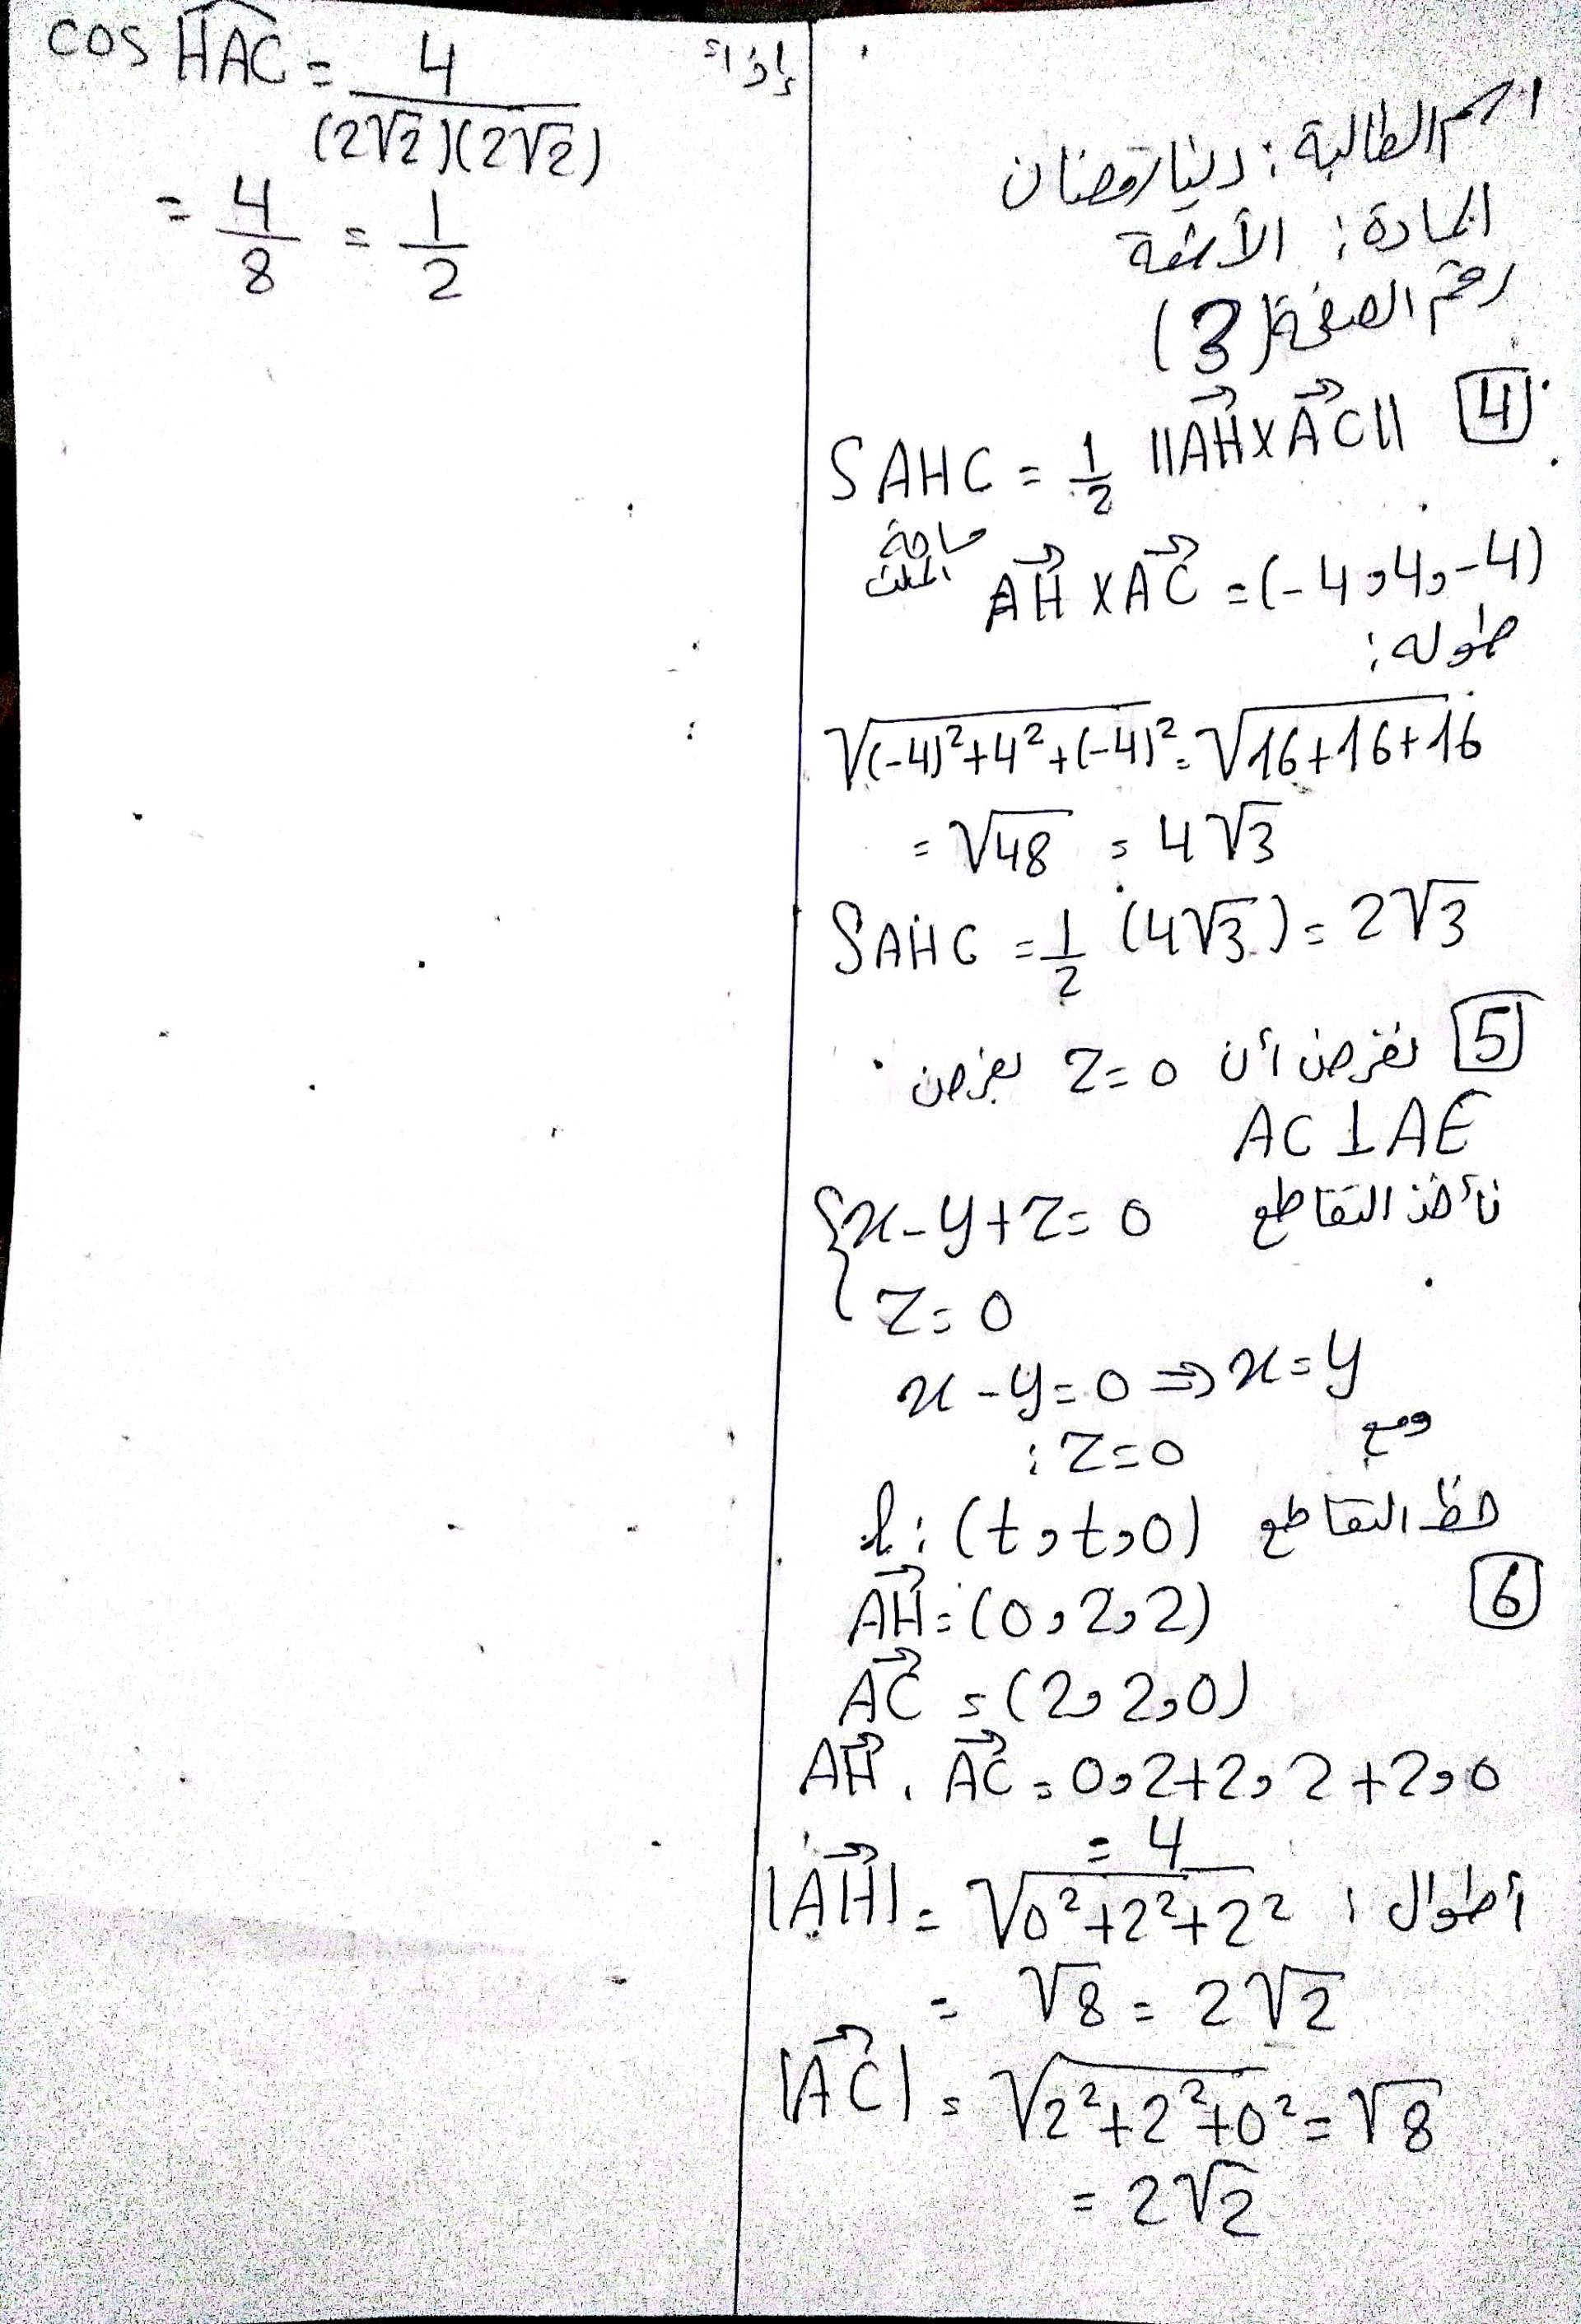 اسم الطالبة: دنيا رمضان
المادة: الأتمتة
رقم الصفحة (3)
[4] SAHC = 1/2 ||AH⃗ x AC⃗||
مساحة المثلث
AH⃗ x AC⃗ = (-4, 4, -4)
طوله:
√((-4)²+4²+(-4)²) = √(16+16+16)
= √48 = 4√3
SAHC = 1/2 (4√3) = 2√3
[5] نفرض أن z=0 بفرض
AC ⊥ AE
نأخذ التقاطع {x-y+z=0
z=0
x-y=0 ⇒ x=y
ومع z=0:
خط التقاطع l: (t, t, 0)
[6]
AH⃗ = (0, 2, 2)
AC⃗ = (2, 2, 0)
AH⃗ . AC⃗ = 0,2+2,2+2,0
= 4
أطوال: |AH⃗| = √(0²+2²+2²)
= √8 = 2√2
|AC⃗| = √(2²+2²+0²) = √8
= 2√2
إذاً cos HAC = 4/((2√2)(2√2))
= 4/8 = 1/2